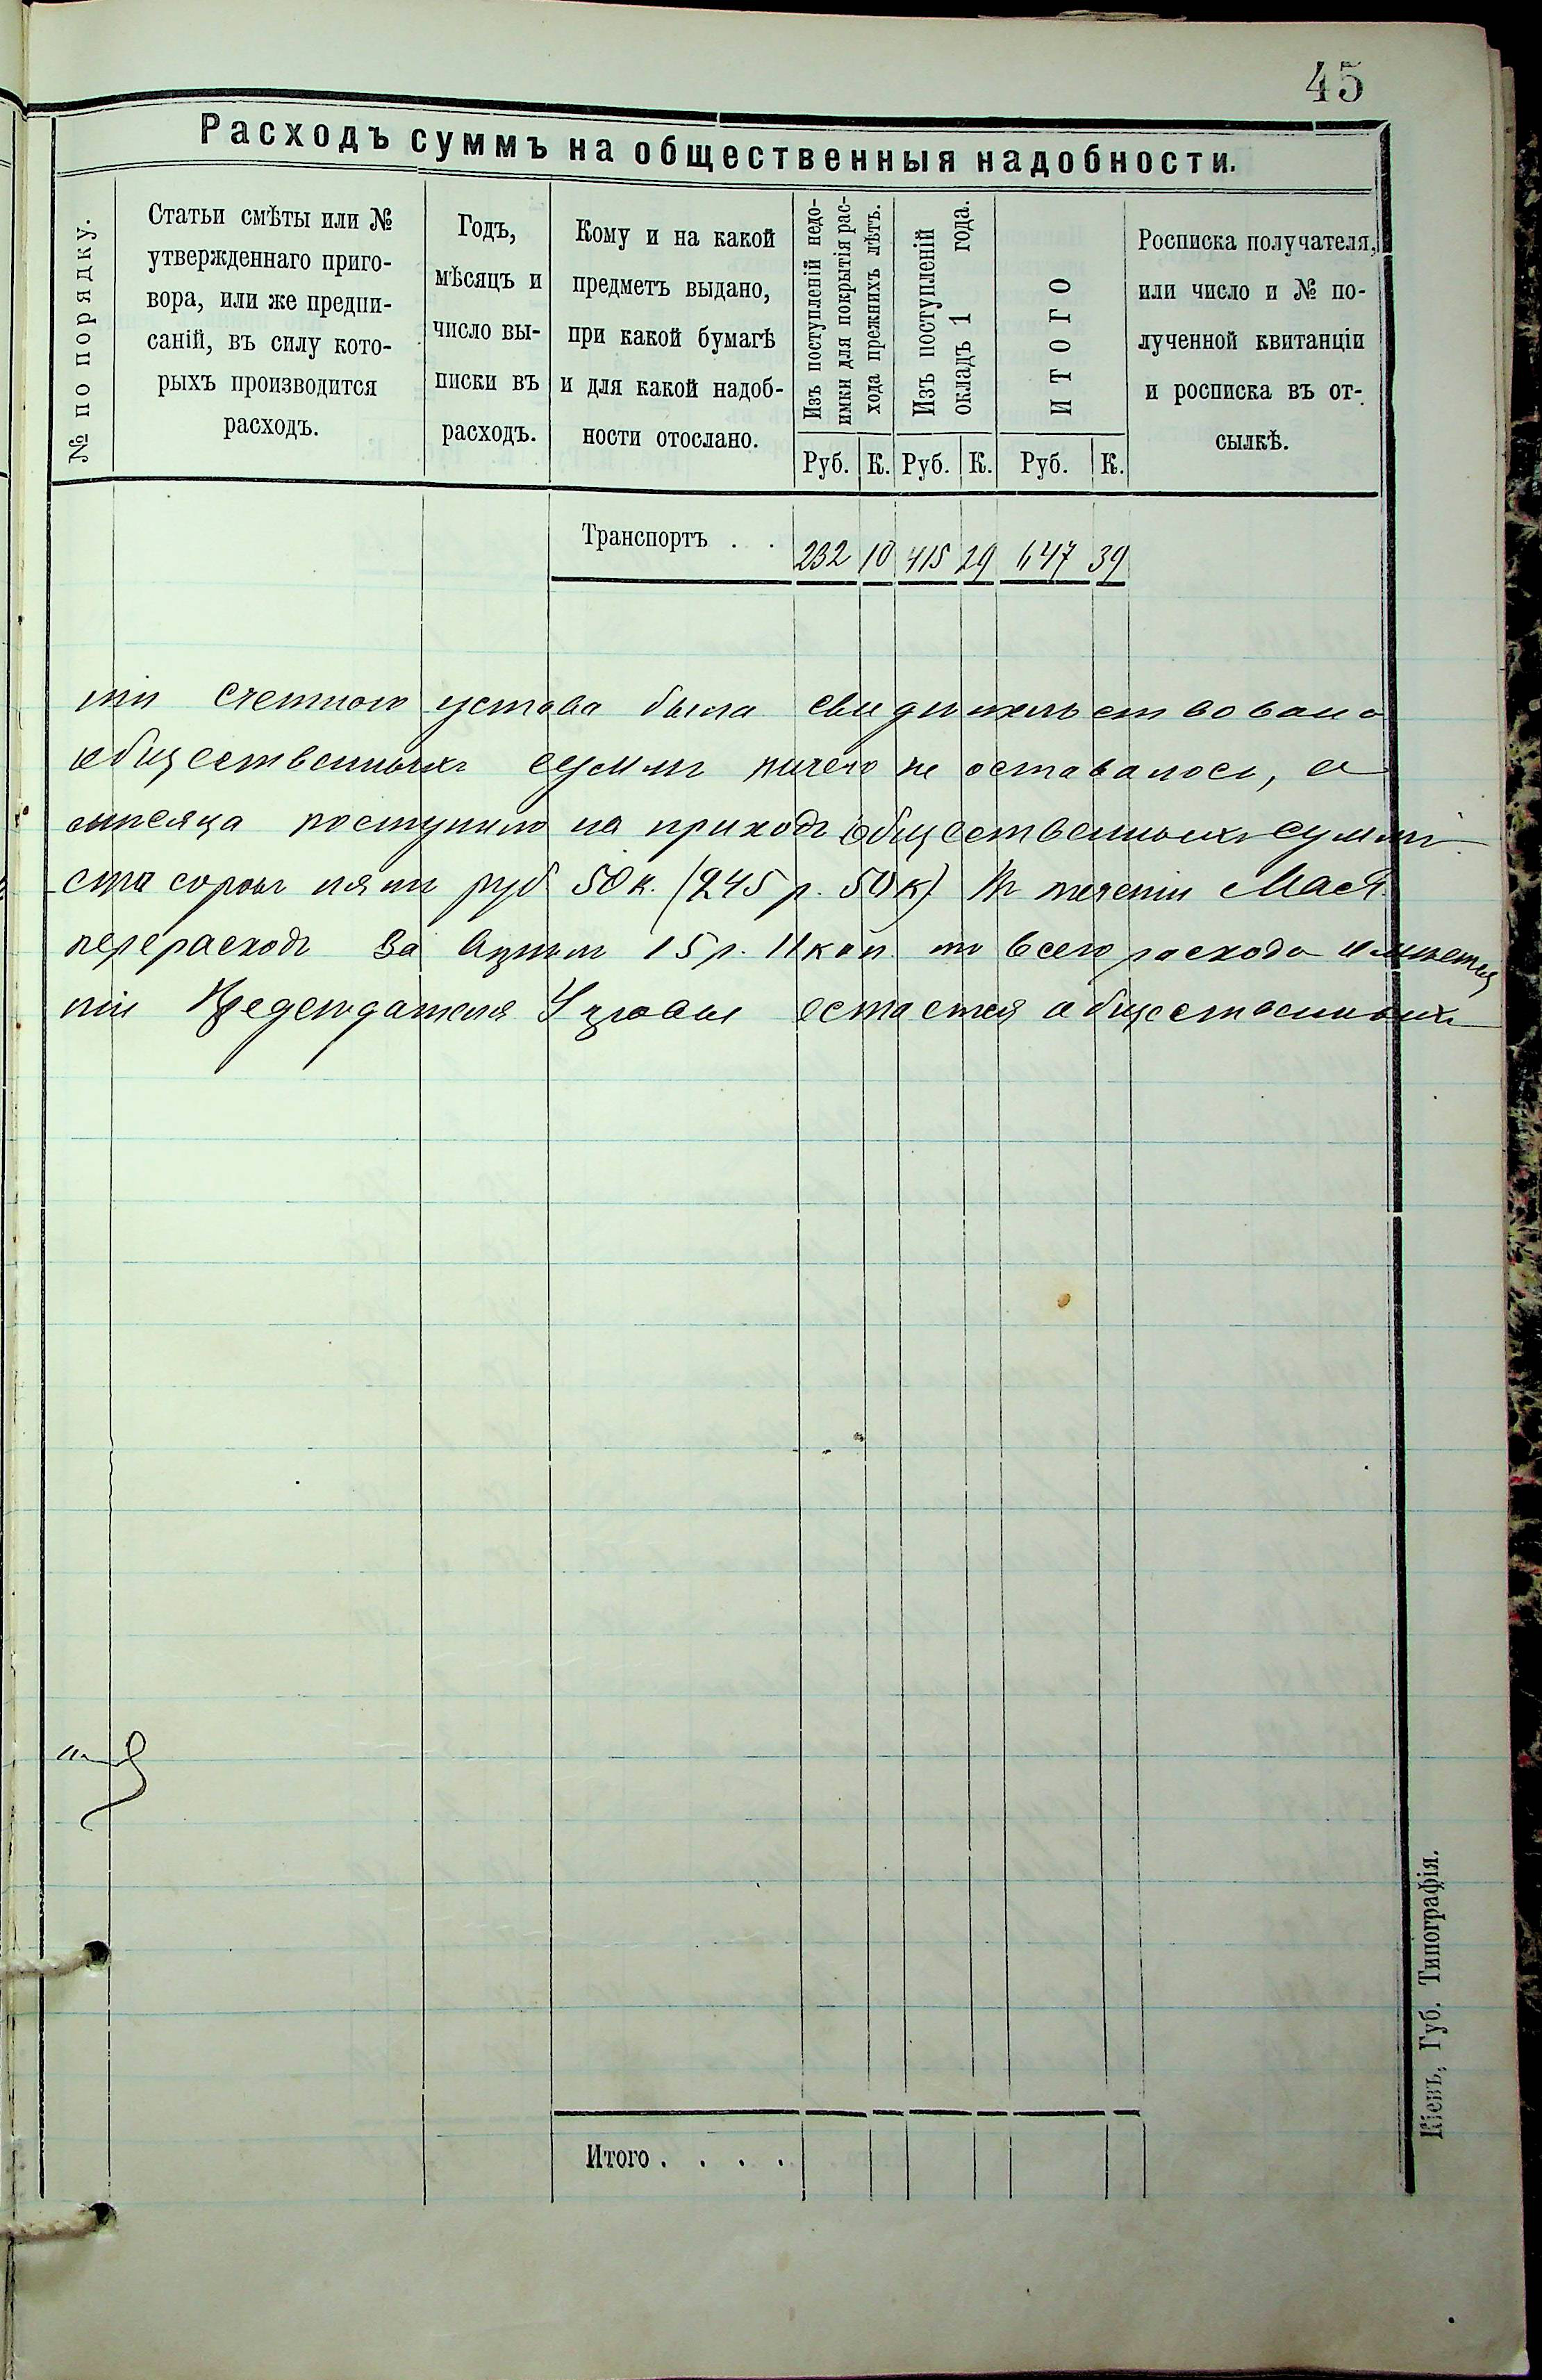 45
Расходъ суммъ на общественныя надобности.
№ по порядку.
Статьи смѣты или №
утвержденнаго приго-
вора, или же предпи-
саній, въ силу кото-
рыхъ производится
расходъ.
Годъ,
мѣсяцъ и
число вы-
писки въ
расходъ.
Кому и на какой
предметъ выдано,
при какой бумагѣ
и для какой надоб-
ности отослано.
Изъ поступленій недо-
имки для покрытія рас-
хода прежнихъ лѣтъ.
Изъ поступленій
окладъ 1 года.
ИТОГО
Росписка получателя,
или число и № по-
лученной квитанціи
и росписка въ от-
сылкѣ.
Руб. К. Руб. К. Руб. К.
Транспортъ . . 232 10 415 29 647 39
счетного устава была свидительствована
общественныхъ суммъ ничего не оставалось, а
мѣсяца поступило на приходъ общественныхъ суммъ
ста сорокъ пять руб 50 к. (245 р. 50 к) Въ теченіи Мая
перерасходъ за 15 р. 11 коп. то всего расхода имѣется
остается общественныхъ
Итого . . . .
Кіевъ, Губ. Типографія.